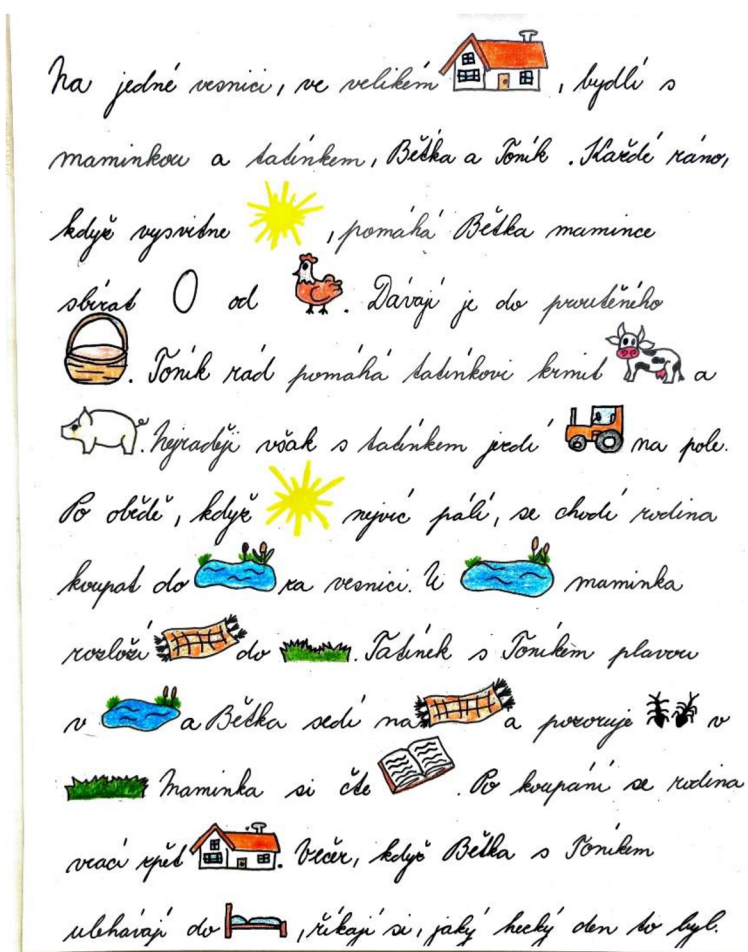 Na jedné vesnici, ve velikém , bydlí s
maminkou a tatínkem, Bětka a Toník. Každé ráno,
když vysvitne , pomáhá Bětka mamince
sbírat od . Dávají je do proutěného
. Toník rád pomáhá tatínkovi krmit a
. Nejraději však s tatínkem jezdí na pole.
Po obědě, když nejvíc pálí, se chodí rodina
koupat do za vesnici. U maminka
rozloží do . Tatínek s Toníkem plavou
v a Bětka sedí na a pozoruje v
Maminka si čte . Po koupání se rodina
vrací zpět . Večer, když Bětka s Toníkem
uléhávají do , říkají si, jaký hezký den to byl.